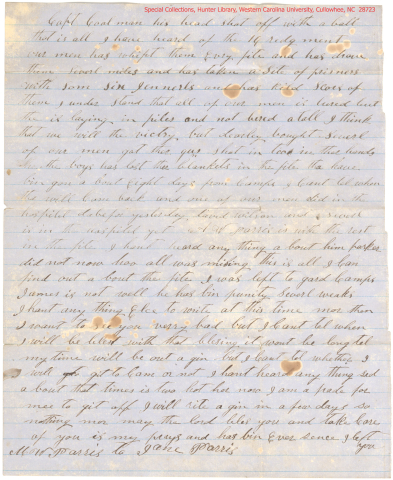 Special Collections, Hunter Library, Western Carolina University, Cullowhee, NC 28723
Capt Coalman his head shat off with a ball
that is all I have heard of the 16 redgment
our men has whipt them evry pile and has driven
them severl miles and has taken a site of prisners
with som six Jennerls and has kild
them I under stand that all of our men is bured but
the is laying in piles and not bered atall I think
that we will the victry but dearley bought severl
of our men got the guns shat in two in thar hands
the boys has lost thar blankets in the fite tha have
bin gon a bout eight days from Camps I Cant tel when
tha will Cam back and one of our men died in the
hospital day before yesterday
is in the hospital yet Parris is with the rest
in the fite I hant heard any thing a bout him parker
did not now who all was missing this is all I Can
find out a bout the fite I was left to gard Camps
James is not well he has bin punity severl weaks
I hant any thing else to write at this time mor than
I want to see you verry bad but I Cant tel when
I will be blest with that blesing it wont be long tel
my time will be out a gin but I Cant tel whether I
will git to Com or not I hant heard any thing sed
a bout that times is two hot her now I am a frade for
mee to git off I will rite a gin in a few days so
nothing mor may the lord bles you and take Care
of you is my prays and has bin Ever sence I left
you
M W Parris to Jane Parris